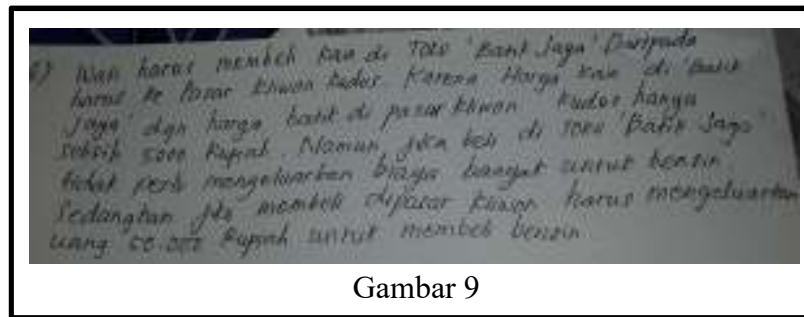 Wati harus membeli kain di Toko 'Batik Jaga' Daripada
harus ke Pasar kliwon kudus. Karena Harga kain di 'Batik
Jaga' dgn harga batik di pasar kliwon kudus hanya
selisih 5000 Rupiah. Namun, jika beli di Toko 'Batik Jago'
tidak perlu mengeluarkan biaya banyak untuk bensin
Sedangkan jika membeli dipasar kliwon harus mengeluarkan
uang 50.000 Rupiah untuk membeli bensin.
Gambar 9